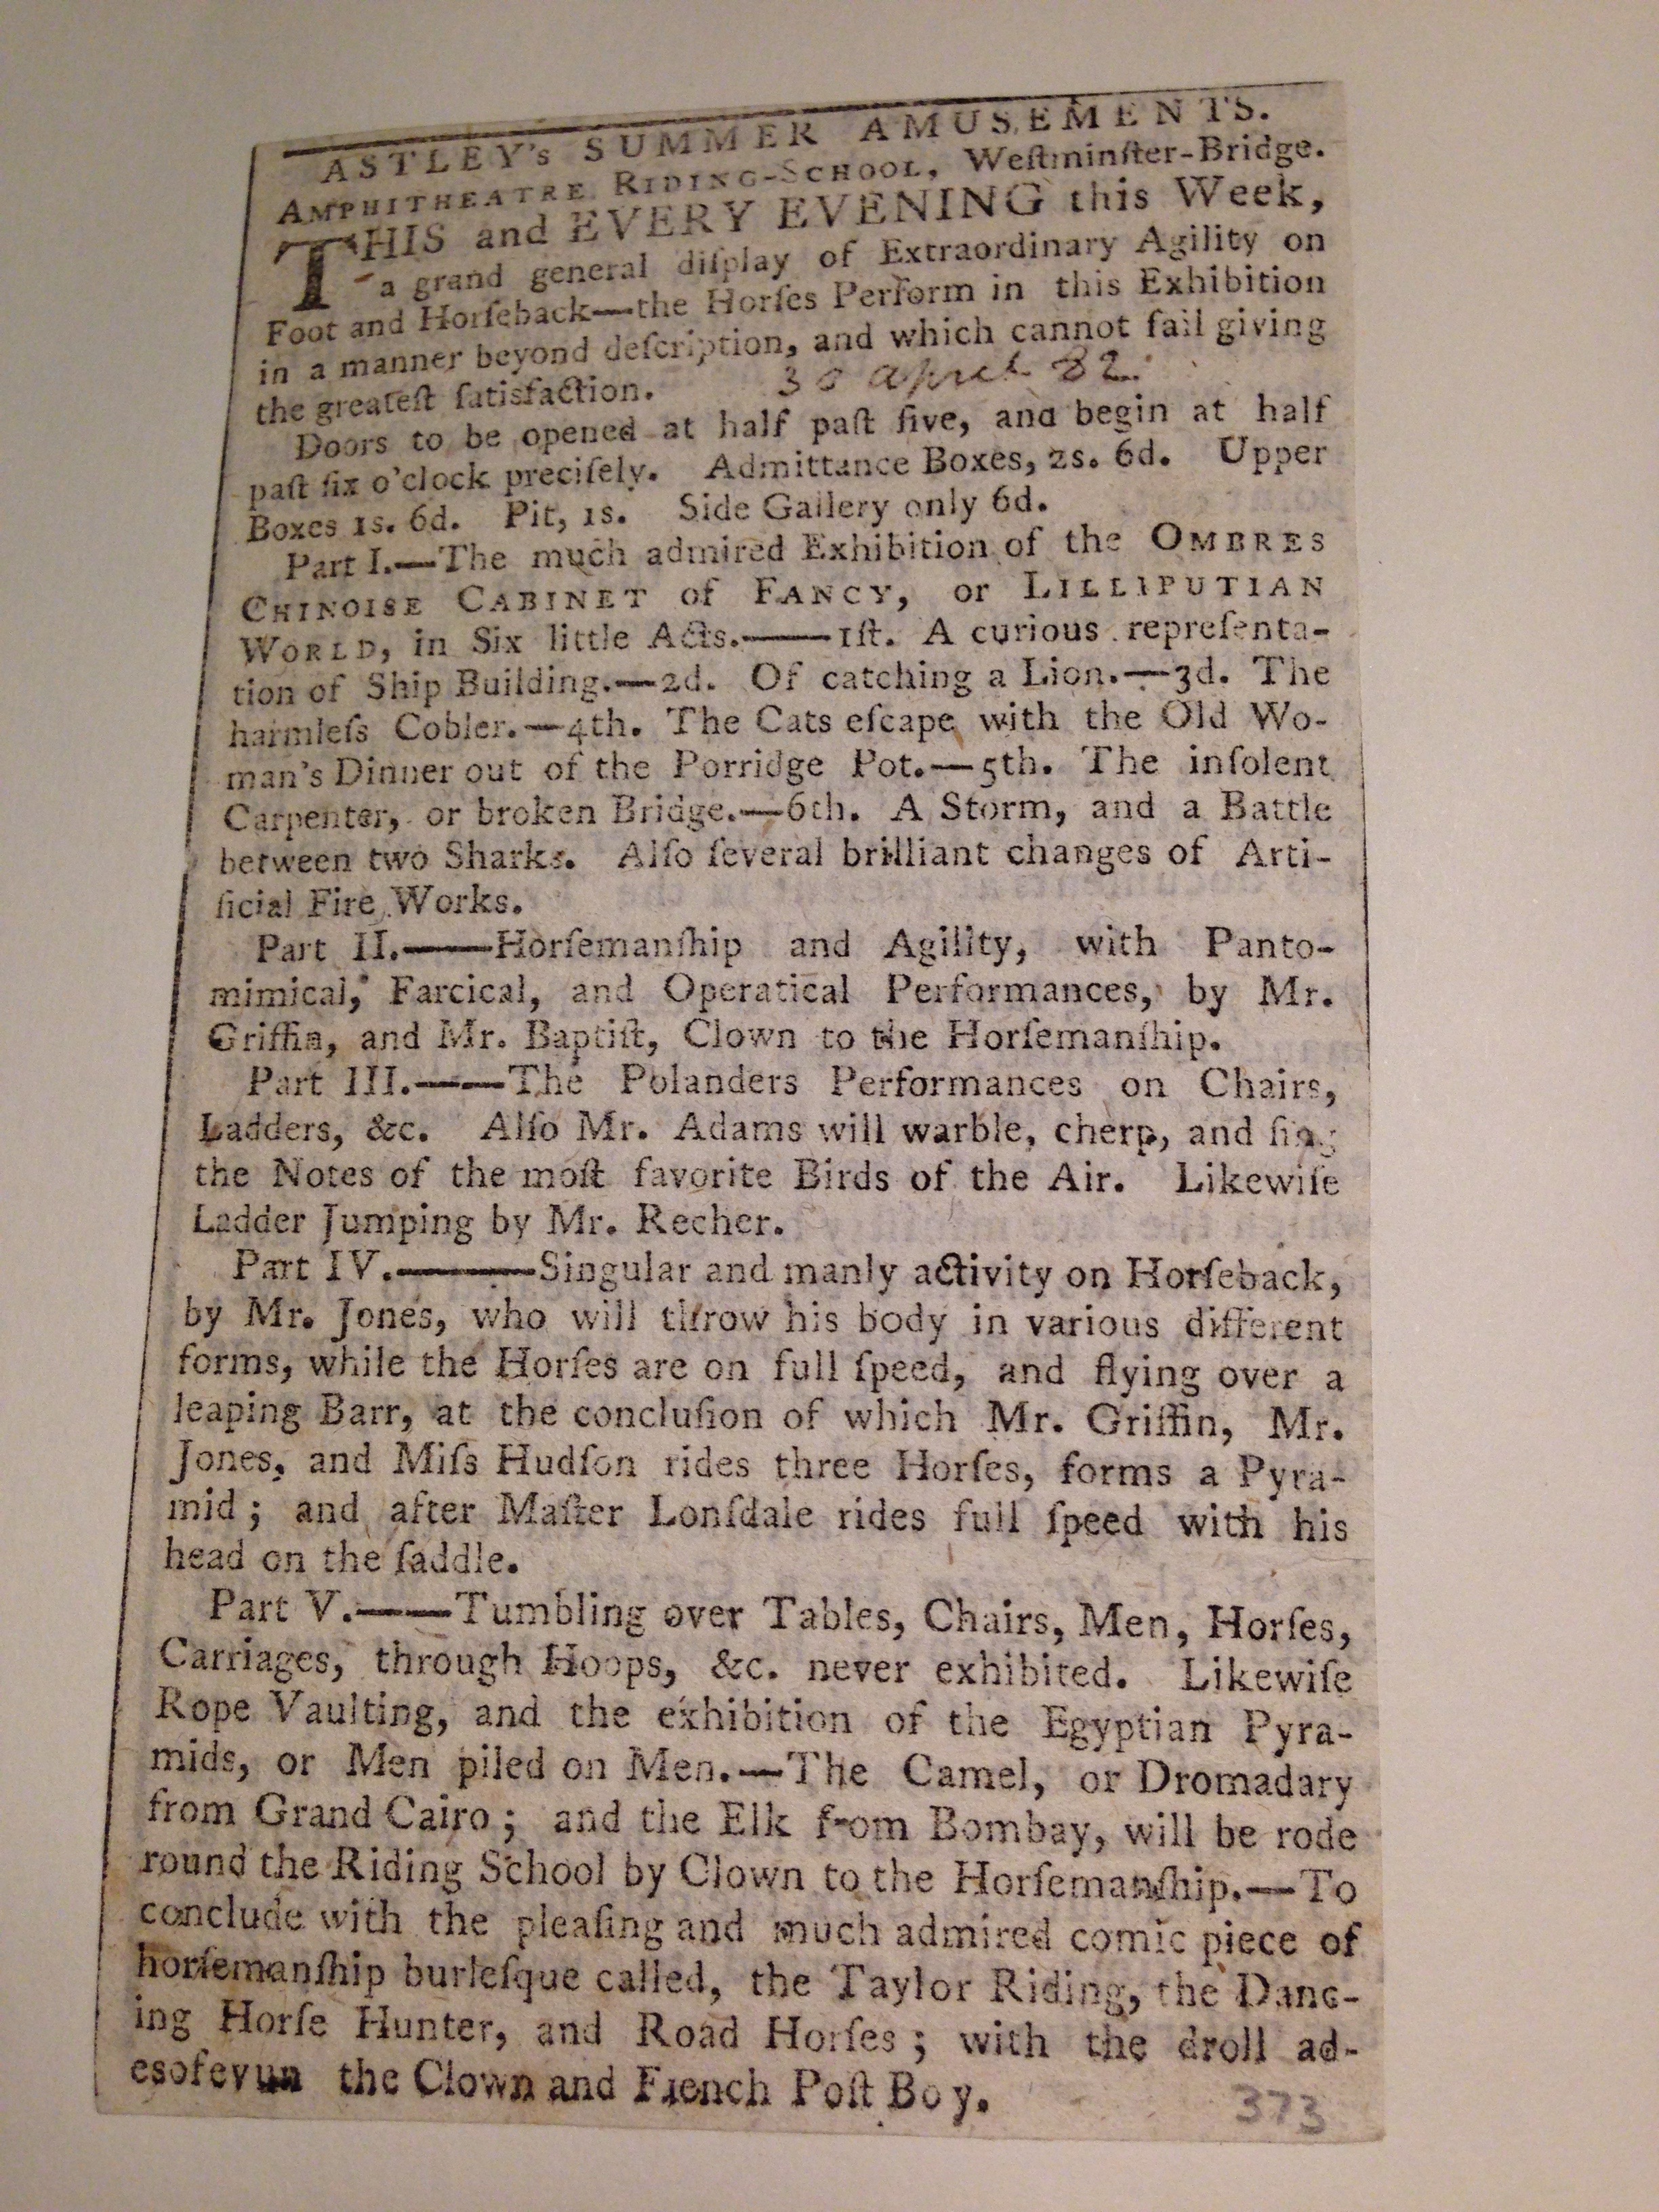 ASTLEY's SUMMER AMUSEMENTS.
AMPHITHEATRE RIDING-SCHOOL, Weſtminſter-Bridge.
THIS and EVERY EVENING this Week,
a grand general diſplay of Extraordinary Agility on
Foot and Horſeback—the Horſes Perform in this Exhibition
in a manner beyond deſcription, and which cannot fail giving
the greateſt ſatisfaction.
30 april 82.
Doors to be opened at half paſt five, and begin at half
paſt ſix o'clock preciſely. Admittance Boxes, 2s. 6d. Upper
Boxes 1s. 6d. Pit, 1s. Side Gallery only 6d.
Part I.—The much admired Exhibition of the OMBRES
CHINOISE CABINET of FANCY, or LILLIPUTIAN
WORLD, in Six little Acts.——1ſt. A curious repreſenta-
tion of Ship Building.—2d. Of catching a Lion.—3d. The
harmleſs Cobler.—4th. The Cats eſcape with the Old Wo-
man's Dinner out of the Porridge Pot.—5th. The inſolent
Carpenter, or broken Bridge.—6th. A Storm, and a Battle
between two Sharks. Alſo ſeveral brilliant changes of Arti-
ficial Fire Works.
Part II.——Horſemanſhip and Agility, with Panto-
mimical, Farcical, and Operatical Performances, by Mr.
Griffin, and Mr. Baptiſt, Clown to the Horſemanſhip.
Part III.——The Polanders Performances on Chairs,
Ladders, &c. Alſo Mr. Adams will warble, cherp, and ſing
the Notes of the moſt favorite Birds of the Air. Likewiſe
Ladder Jumping by Mr. Recher.
Part IV.———Singular and manly activity on Horſeback,
by Mr. Jones, who will throw his body in various different
forms, while the Horſes are on full ſpeed, and flying over a
leaping Barr, at the concluſion of which Mr. Griffin, Mr.
Jones, and Miſs Hudſon rides three Horſes, forms a Pyra-
mid; and after Maſter Lonſdale rides full ſpeed with his
head on the ſaddle.
Part V.——Tumbling over Tables, Chairs, Men, Horſes,
Carriages, through Hoops, &c. never exhibited. Likewiſe
Rope Vaulting, and the exhibition of the Egyptian Pyra-
mids, or Men piled on Men.—The Camel, or Dromadary
from Grand Cairo; and the Elk from Bombay, will be rode
round the Riding School by Clown to the Horſemanſhip.—To
conclude with the pleaſing and much admired comic piece of
horſemanſhip burleſque called, the Taylor Riding, the Danc-
ing Horſe Hunter, and Road Horſes; with the droll ad-
esofevun the Clown and French Poſt Boy.
373